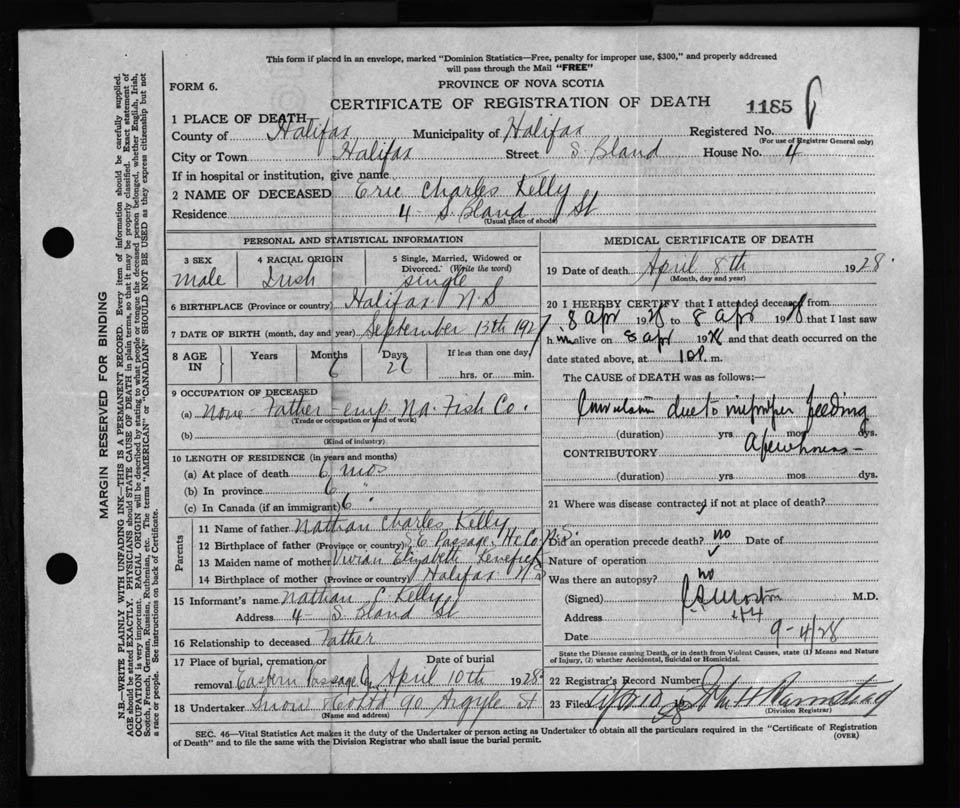 This form if placed in an envelope, marked "Dominion Statistics—Free, penalty for improper use, $300," and properly addressed
will pass through the Mail "FREE"
FORM 6.
PROVINCE OF NOVA SCOTIA
CERTIFICATE OF REGISTRATION OF DEATH
1185
1 PLACE OF DEATH
County of Halifax Municipality of Halifax Registered No.
(For use of Registrar General only)
City or Town Halifax Street S. Bland House No. 4
If in hospital or institution, give name
2 NAME OF DECEASED Eric Charles Kelly
Residence 4 S. Bland St
(Usual place of abode)
PERSONAL AND STATISTICAL INFORMATION
3 SEX
male
4 RACIAL ORIGIN
Irish
5 Single, Married, Widowed or
Divorced. (Write the word)
single
6 BIRTHPLACE (Province or country) Halifax N.S
7 DATE OF BIRTH (month, day and year) September 13th 1927
8 AGE
IN
Years
Months
6
Days
26
If less than one day,
hrs. or min.
9 OCCUPATION OF DECEASED
(a) None - Father - emp. Na. Fish Co.
(Trade or occupation or kind of work)
(b)
(Kind of industry)
10 LENGTH OF RESIDENCE (in years and months)
(a) At place of death 6 mos
(b) In province 6 "
(c) In Canada (if an immigrant) 6 "
Parents
11 Name of father Nathan Charles Kelly
12 Birthplace of father (Province or country) E. Passage, Hx Co N.S.
13 Maiden name of mother Vivian Elizabeth
14 Birthplace of mother (Province or country) Halifax N S
15 Informant's name Nathan C. Kelly
Address 4 S. Bland St
16 Relationship to deceased Father
17 Place of burial, cremation or
removal Eastern Passage
Date of burial
April 10th 1928
18 Undertaker Snow & Co Ltd 90 Argyle St
(Name and address)
MEDICAL CERTIFICATE OF DEATH
19 Date of death April 8th 1928.
(Month, day and year)
20 I HEREBY CERTIFY that I attended deceased from
8 Apr 1928 to 8 Apr 1928 that I last saw
h im alive on 8 Apr 1928 and that death occurred on the
date stated above, at 10 P. m.
The CAUSE of DEATH was as follows:—
due to improper feeding
(duration) yrs mos dys.
CONTRIBUTORY
(duration) yrs. mos. dys.
21 Where was disease contracted if not at place of death?
Did an operation precede death? no Date of
Nature of operation
Was there an autopsy? no
(Signed) M.D.
Address
Date 9-4/28
State the Disease causing Death, or in death from Violent Causes, state (1) Means and Nature
of Injury, (2) whether Accidental, Suicidal or Homicidal.
22 Registrar's Record Number
23 Filed
(Division Registrar)
SEC. 46—Vital Statistics Act makes it the duty of the Undertaker or person acting as Undertaker to obtain all the particulars required in the "Certificate of Registration
of Death" and to file the same with the Division Registrar who shall issue the burial permit.
(OVER)
MARGIN RESERVED FOR BINDING
N.B.—WRITE PLAINLY WITH UNFADING INK—THIS IS A PERMANENT RECORD. Every item of information should be carefully supplied.
AGE should be stated EXACTLY. PHYSICIANS should STATE CAUSE OF DEATH in plain terms, so that it may be properly classified. Exact statement of
OCCUPATION is very important. RACIAL ORIGIN will be described by stating to what people or tongue the deceased person belonged, whether English, Irish,
Scotch, French, German, Russian, Ruthenian, etc. The terms "AMERICAN" or "CANADIAN" SHOULD NOT BE USED as they express citizenship but not
a race or people. See instructions on back of Certificate.